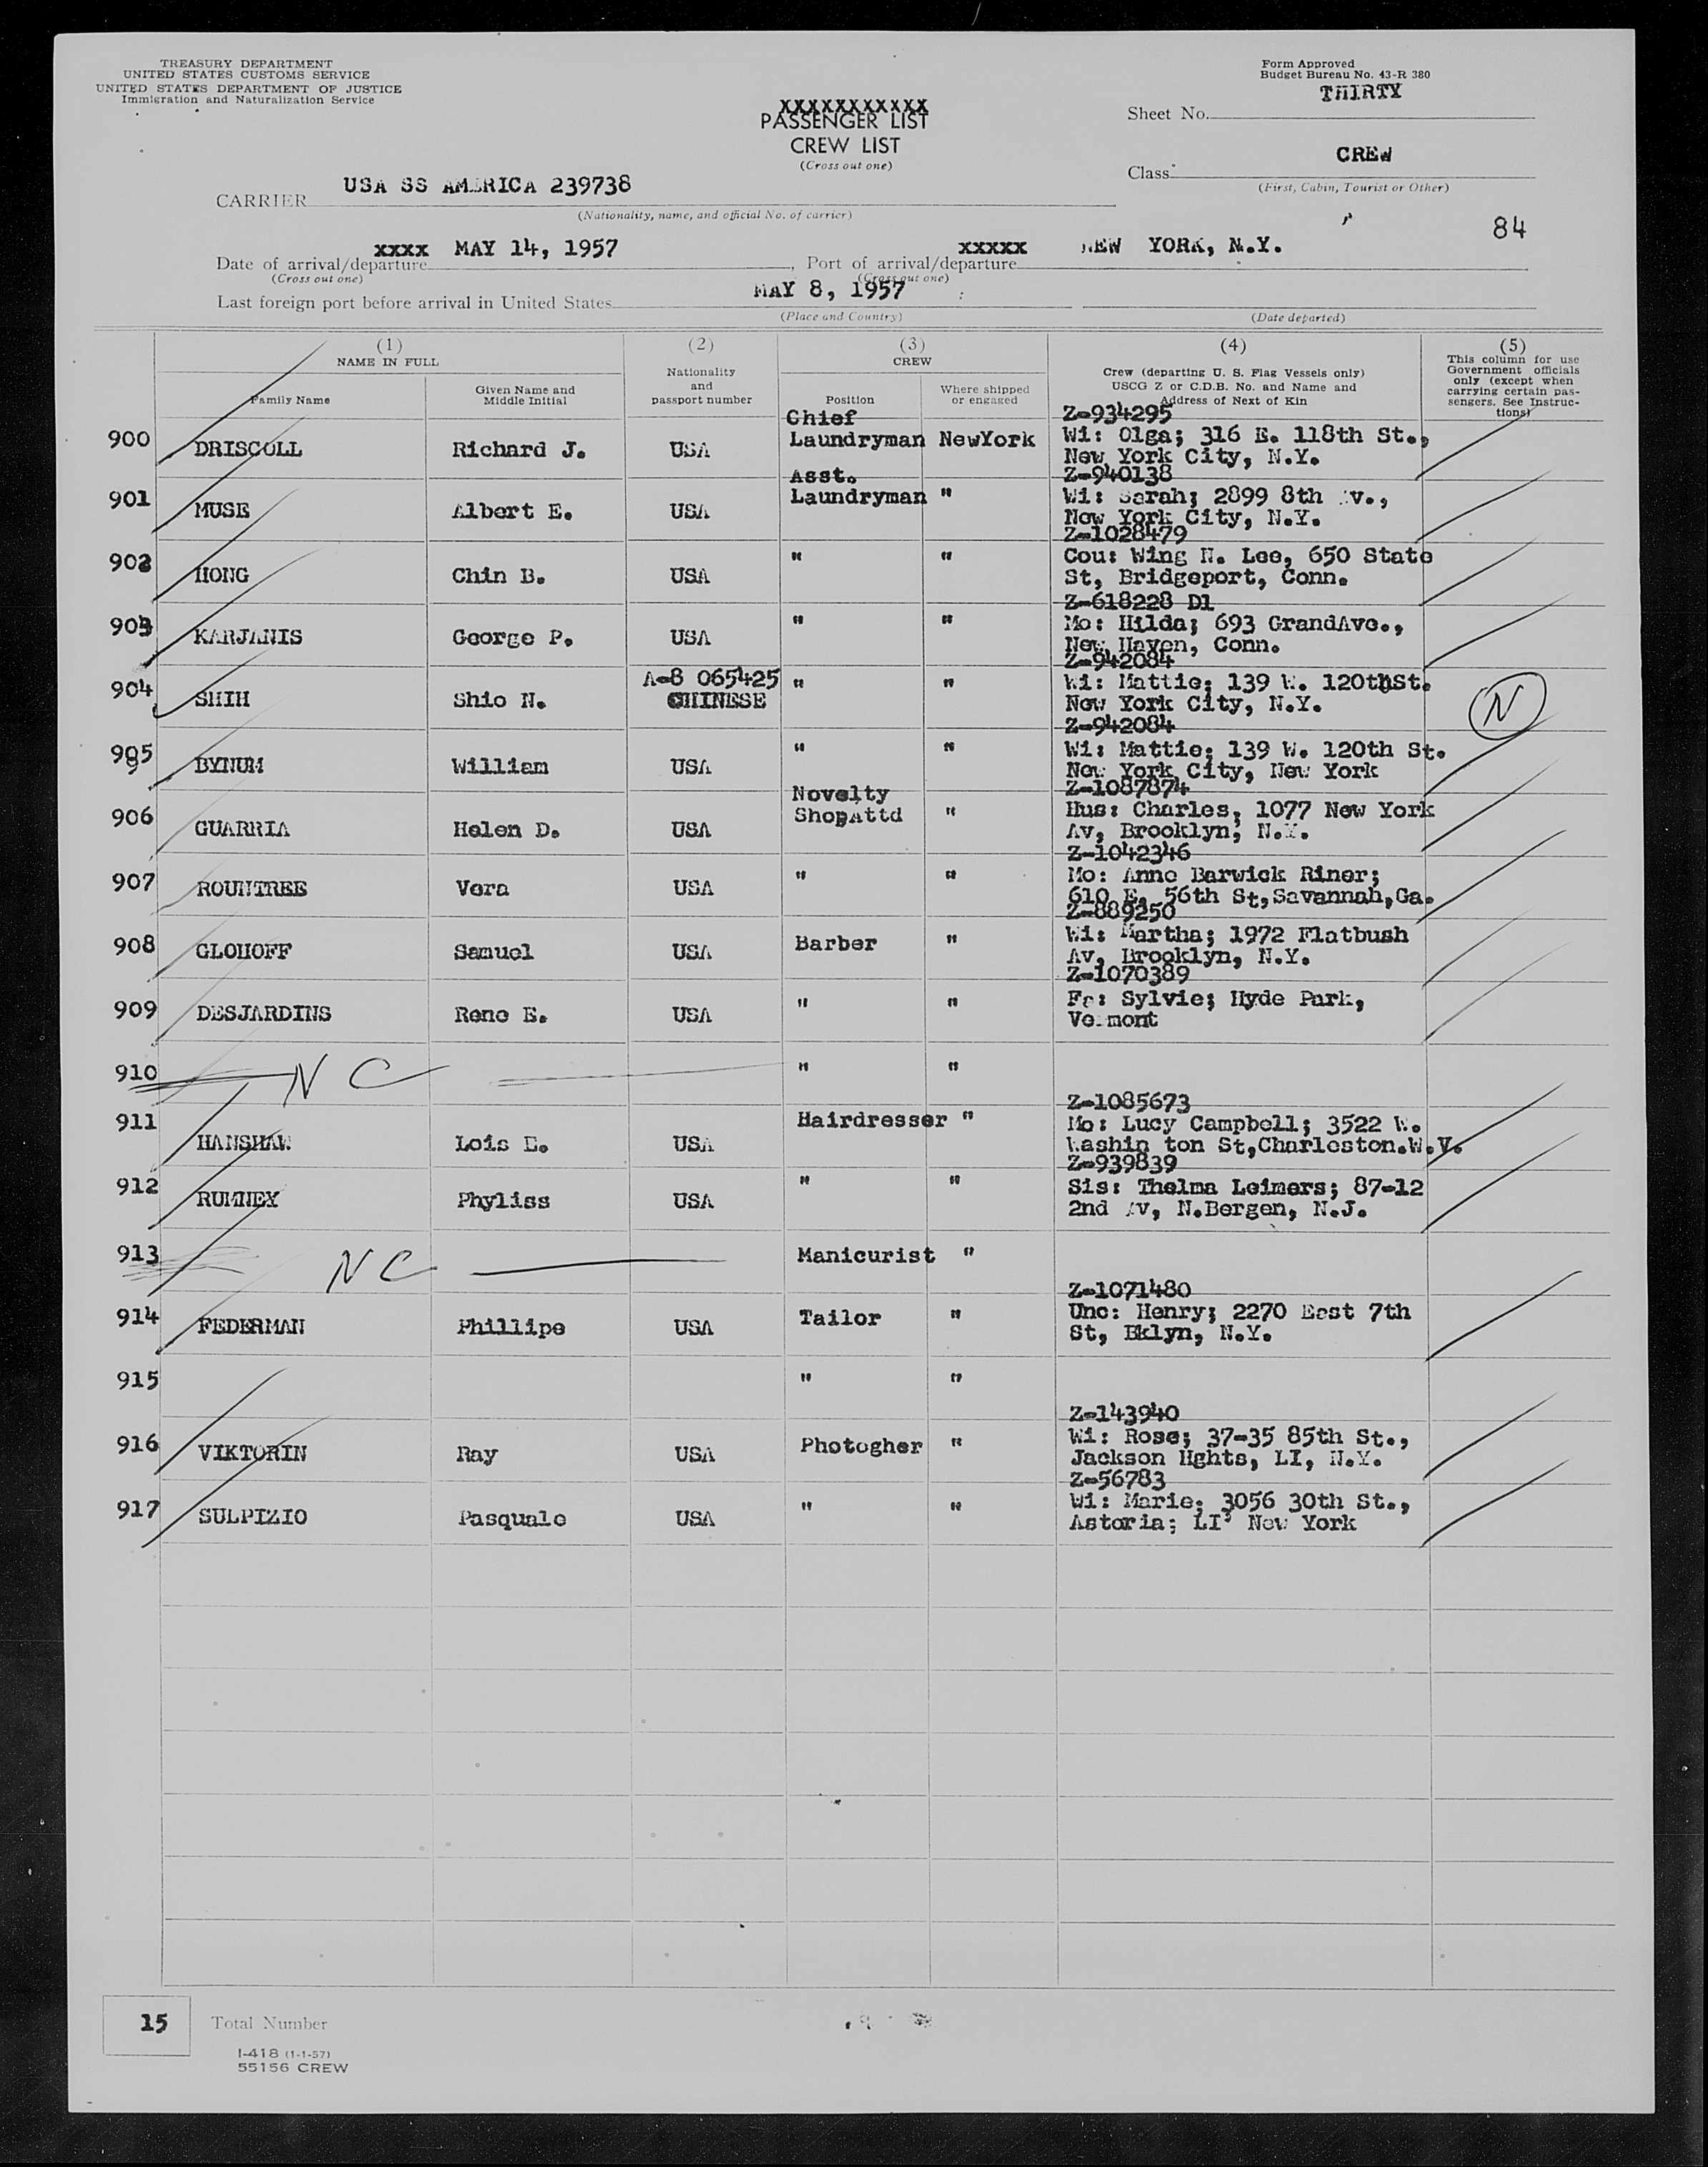 TREASURY DEPARTMENT
UNITED STATES CUSTOMS SERVICE
UNITED STATES DEPARTMENT OF JUSTICE
Immigration and Naturalization Service
Form Approved
Budget Bureau No. 43-R 380
THIRTY
Sheet No.
XXXXXXXXXXX
PASSENGER LIST
CREW LIST
(Cross out one)
CREW
Class
(First, Cabin, Tourist or Other)
USA SS AMERICA 239738
CARRIER
(Nationality, name, and official No. of carrier)
84
xxxx MAY 14, 1957 xxxxx NEW YORK, N.Y.
Date of arrival/departure , Port of arrival/departure
(Cross out one) (Cross out one)
MAY 8, 1957
Last foreign port before arrival in United States
(Place and Country) (Date departed)
(1) (2) (3) (4) (5)
NAME IN FULL Nationality and passport number CREW Crew (departing U. S. Flag Vessels only) USCG Z or C.D.B. No. and Name and Address of Next of Kin This column for use Government officials only (except when carrying certain passengers. See Instructions)
Family Name Given Name and Middle Initial Position Where shipped or engaged
Chief Z-934295
900 DRISCOLL Richard J. USA Laundryman NewYork Wi: Olga; 316 E. 118th St.,
New York City, N.Y.
Asst. Z-940138
901 MUSE Albert E. USA Laundryman " Wi: Sarah; 2899 8th Av.,
New York City, N.Y.
Z-1028479
902 HONG Chin B. USA " " Cou: Wing N. Lee, 650 State
St, Bridgeport, Conn.
Z-618228 D1
903 KARJANIS George P. USA " " Mo: Hilda; 693 GrandAve.,
New Haven, Conn.
A-8 065425 Z-942084
904 SHIH Shio N. CHINESE " " Wi: Mattie; 139 W. 120thSt.
New York City, N.Y. N
Z-942084
905 BYNUM William USA " " Wi: Mattie; 139 W. 120th St.
New York City, New York
Novelty Z-1087874
906 GUARRIA Helen D. USA ShopAttd " Hus: Charles, 1077 New York
Av, Brooklyn, N.Y.
Z-1042346
907 ROUNTREE Vera USA " " Mo: Anne Barwick Riner;
610 E. 56th St,Savannah,Ga.
Z-889250
908 GLOHOFF Samuel USA Barber " Wi: Martha; 1972 Flatbush
Av, Brooklyn, N.Y.
Z-1070389
909 DESJARDINS Rene E. USA " " Fa: Sylvie; Hyde Park,
Vermont
910 N C " "
Z-1085673
911 HANSHAW Lois E. USA Hairdresser " Mo: Lucy Campbell; 3522 W.
Washin ton St,Charleston.W.V.
Z-939839
912 RUMNEY Phyliss USA " " Sis: Thelma Leimers; 87-12
2nd Av, N.Bergen, N.J.
913 N C Manicurist "
Z-1071480
914 FEDERMAN Phillipe USA Tailor " Unc: Henry; 2270 East 7th
St, Bklyn, N.Y.
915 " "
Z-143940
916 VIKTORIN Ray USA Photogher " Wi: Rose; 37-35 85th St.,
Jackson Hghts, LI, N.Y.
Z-56783
917 SULPIZIO Pasquale USA " " Wi: Marie; 3056 30th St.,
Astoria; LI, New York
15 Total Number
I-418 (1-1-57)
55156 CREW